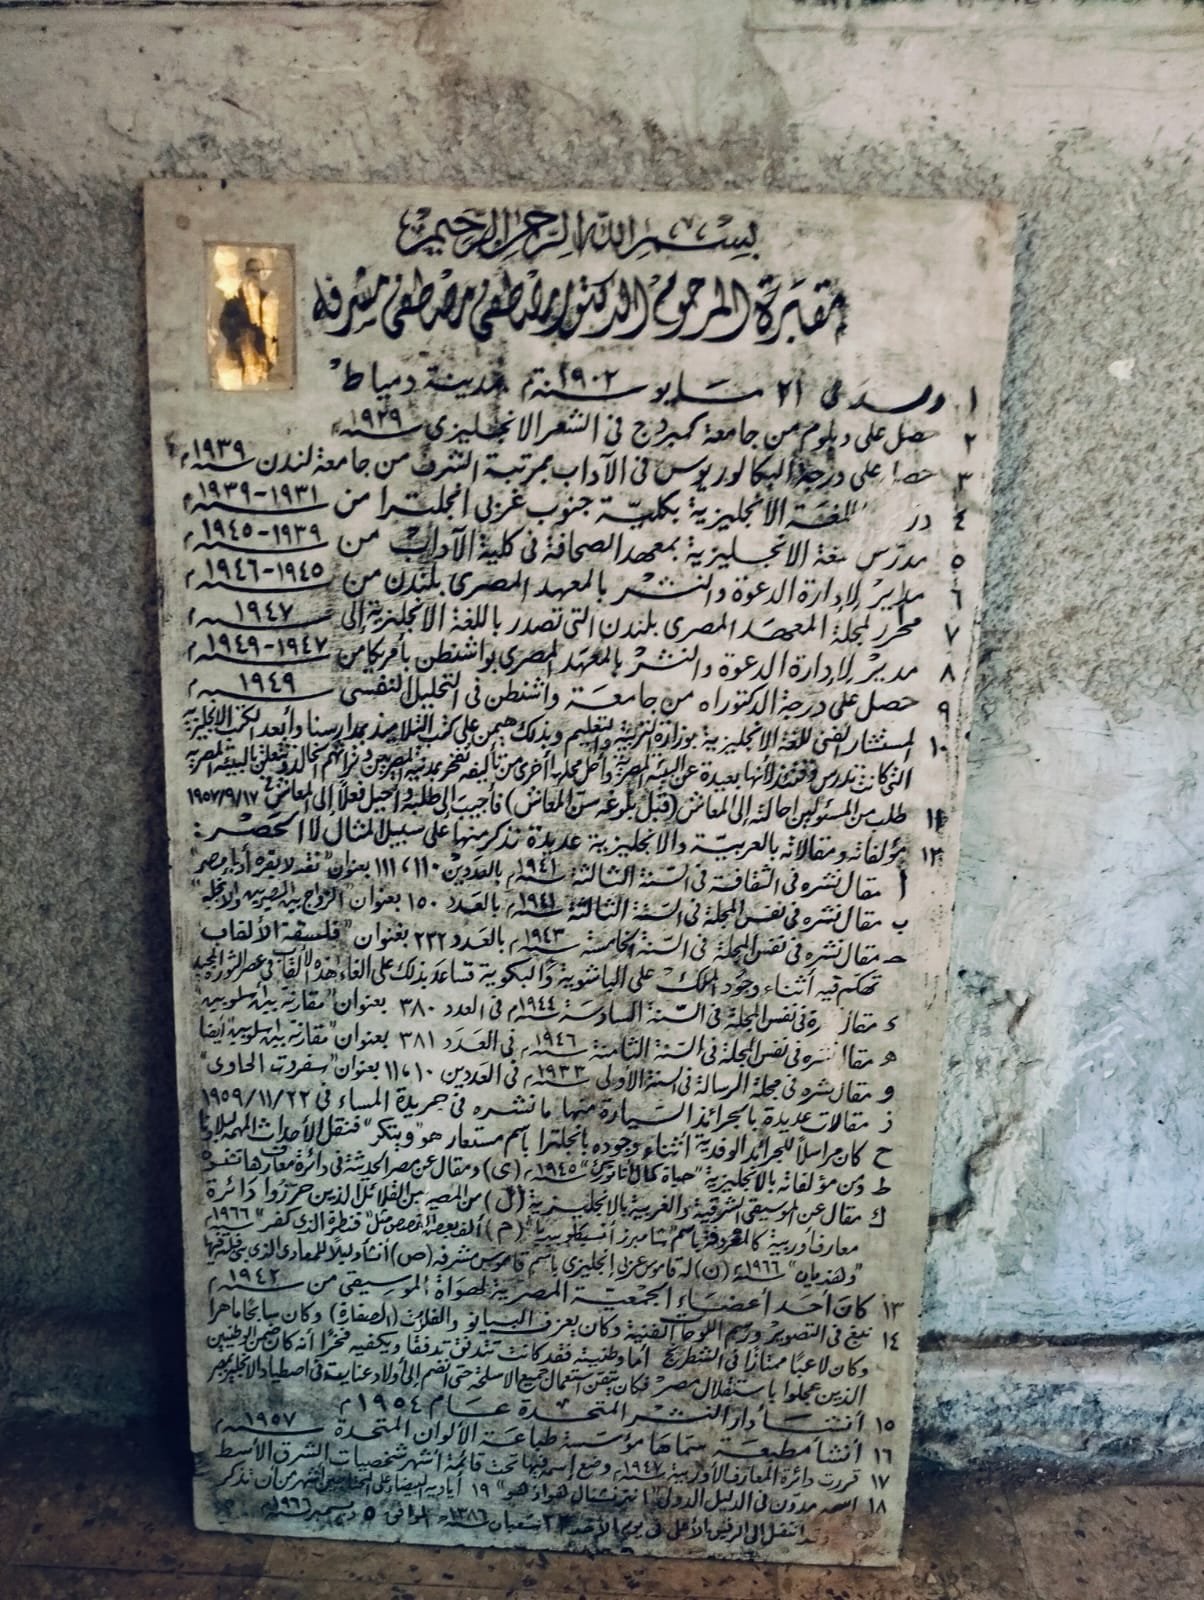 بسم الله الرحمن الرحيم
مقبرة المرحوم الدكتور مصطفى مشرفه
١ ولد فى ٢١ مايو سنة ١٩٠٢م بمدينة دمياط
٢ حصل على دبلوم من جامعة كمبردج فى الشعر الانجليزى سنة ١٩٢٩م
٣ حصل على درجة البكالوريوس فى الآداب بمرتبة الشرف من جامعة لندن سنة ١٩٣٩م
٤ اللغة الانجليزية بكلية جنوب غربى انجلترا من سنة ١٩٣١-١٩٣٩م
٥ مدرس لغة الانجليزية بمعهد الصحافة فى كلية الآداب من سنة ١٩٣٩-١٩٤٥م
٦ مدير لإدارة الدعوة والنشر بالمعهد المصرى بلندن من سنة ١٩٤٥-١٩٤٦م
٧ محرر لمجلة المعهد المصرى بلندن التى تصدر باللغة الانجليزية إلى سنة ١٩٤٧م
٨ مدير لإدارة الدعوة والنشر بالمعهد المصرى بواشنطن بأمريكا من سنة ١٩٤٧-١٩٤٩م
٩ حصل على درجة الدكتوراه من جامعة واشنطن فى التحليل النفسى سنة ١٩٤٩م
١٠ المستشار الفنى للغة الانجليزية بوزارة التربية والتعليم وبذلك هيمن على كتب التلاميذ بمدارسنا وأبعد الكتب الانجليزية
التى كانت تدرس وقتئذ لأنها بعيدة عن البيئة المصرية وأحل محلها أخرى من تأليفه
١١ طلب من المسئولين احالته إلى المعاش (قبل بلوغه سن المعاش) فأجيب إلى طلبه وأحيل فعلاً إلى المعاش فى ١٩٥٧/٩/١٧
١٢ مؤلفاته ومقالاته بالعربية والانجليزية عديدة نذكر منها على سبيل المثال لا الحصر:
أ مقال نشره فى الثقافة فى السنة الثالثة سنة ١٩٤١م بالعددين ١١٠، ١١١ بعنوان
ب مقال نشره فى نفس المجلة فى السنة الثالثة سنة ١٩٤١م بالعدد ١٥٠ بعنوان "الزواج بين المصريين
حـ مقال نشره فى نفس المجلة فى السنة الخامسة سنة ١٩٤٣م بالعدد ٢٣٢ بعنوان "فلسفة الألقاب"
تهكم فيه أثناء وجود الملك على الباشوية والبكوية فساعد بذلك على الغاء هذه الألقاب فى عهد الثورة
ء فى نفس المجلة فى السنة السادسة سنة ١٩٤٤م فى العدد ٣٨٠ بعنوان "مقارنة بين أسلوبين"
هـ مقال نشره فى نفس المجلة فى السنة الثامنة سنة ١٩٤٦م فى العدد ٣٨١ بعنوان "مقارنة بين أسلوبين" أيضا
و مقال نشره فى مجلة الرسالة فى السنة الأولى سنة ١٩٣٣م فى العددين ١٠، ١١ بعنوان "سفروت الحاوى"
ز مقالات عديدة بالجرائد السيارة منها ما نشره فى جريدة المساء فى ١٩٥٩/١١/٢٢
ح كان مراسلاً للجرائد الوفدية أثناء وجوده بانجلترا باسم مستعار هو فنقل الأحداث المهمة
ط ومن مؤلفاته بالانجليزية "حياة كمال أتاتورك" ١٩٤٥م (ى) ومقال عن مصر الحديثة فى دائرة معارف
ك مقال عن الموسيقى الشرقية والغربية بالانجليزية (ل) من المصريين القلائل الذين حرروا دائرة
معارف أوربية كالمعروفة باسم "شامبرز أنسيكلوبيديا" (م) ألف بعض القصص مثل "قنطرة الذى كفر" ١٩٦٦م
"وهذيان" سنة ١٩٦٦م (ن) له قاموس عربى انجليزى باسم قاموس مشرفه (ص) أنشأ دليلاً للمعادى الذى
١٣ كان أحد أعضاء الجمعية المصرية لهواة الموسيقى من سنة ١٩٤٢م
١٤ نبغ فى التصوير ورسم اللوحات الفنية وكان يعزف البيانو والفلوت (الصفارة) وكان سابحا ماهرا
وكان لاعبا ممتازا فى الشطرنج أما وطنيته فقد كانت تتدفق تدفقا ويكفيه فخرا أنه كان ضمن الوطنيين
الذين عجلوا باستقلال مصر فكان يتقن استعمال جميع الاسلحة حتى انضم إلى أولاد عنايت فى اصطياد الانجليز بمصر
١٥ أنشأ دار النشر المتحدة عام ١٩٥٤م
١٦ أنشأ مطبعة سماها مؤسسة طباعة الألوان المتحدة سنة ١٩٥٧م
١٧ قررت دائرة المعارف الأوربية سنة ١٩٤٧م وضع إسمه فيها تحت قائمة أشهر شخصيات الشرق الأوسط
١٨ اسمه مدون فى الدليل الدولى "انترنشنال هواز هو" ١٩ أياديه البيضاء على أشهر من أن تذكر
وقد انتقل إلى الرفيق الأعلى فى يوم الأحد ٢٣ شعبان سنة ١٣٨٦ الموافق ٥ ديسمبر ١٩٦٦م